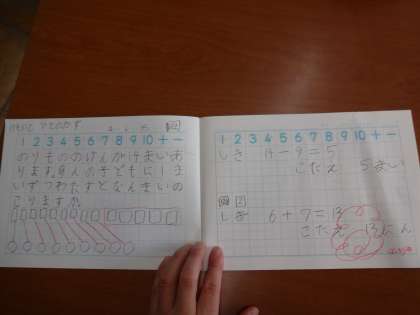 1 2 3 4 5 6 7 8 9 10 + −
のりもののけんが14まいあ
ります。9人の子どもに1ま
いずつわたすとなんまいの
こりますか。
1 2 3 4 5 6 7 8 9 10 + −
しき 14−9=5
こたえ 5まい
問2
しき 6+7=13
こたえ 13にん